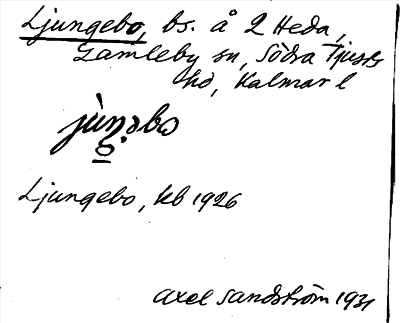 Ljungebo, bs. å 2 Heda,
Gamleby sn, Södra Tjusts
hd, Kalmar l
jùŋ̲əbω
Ljungebo, kb 1926
Axel Sandström 1931